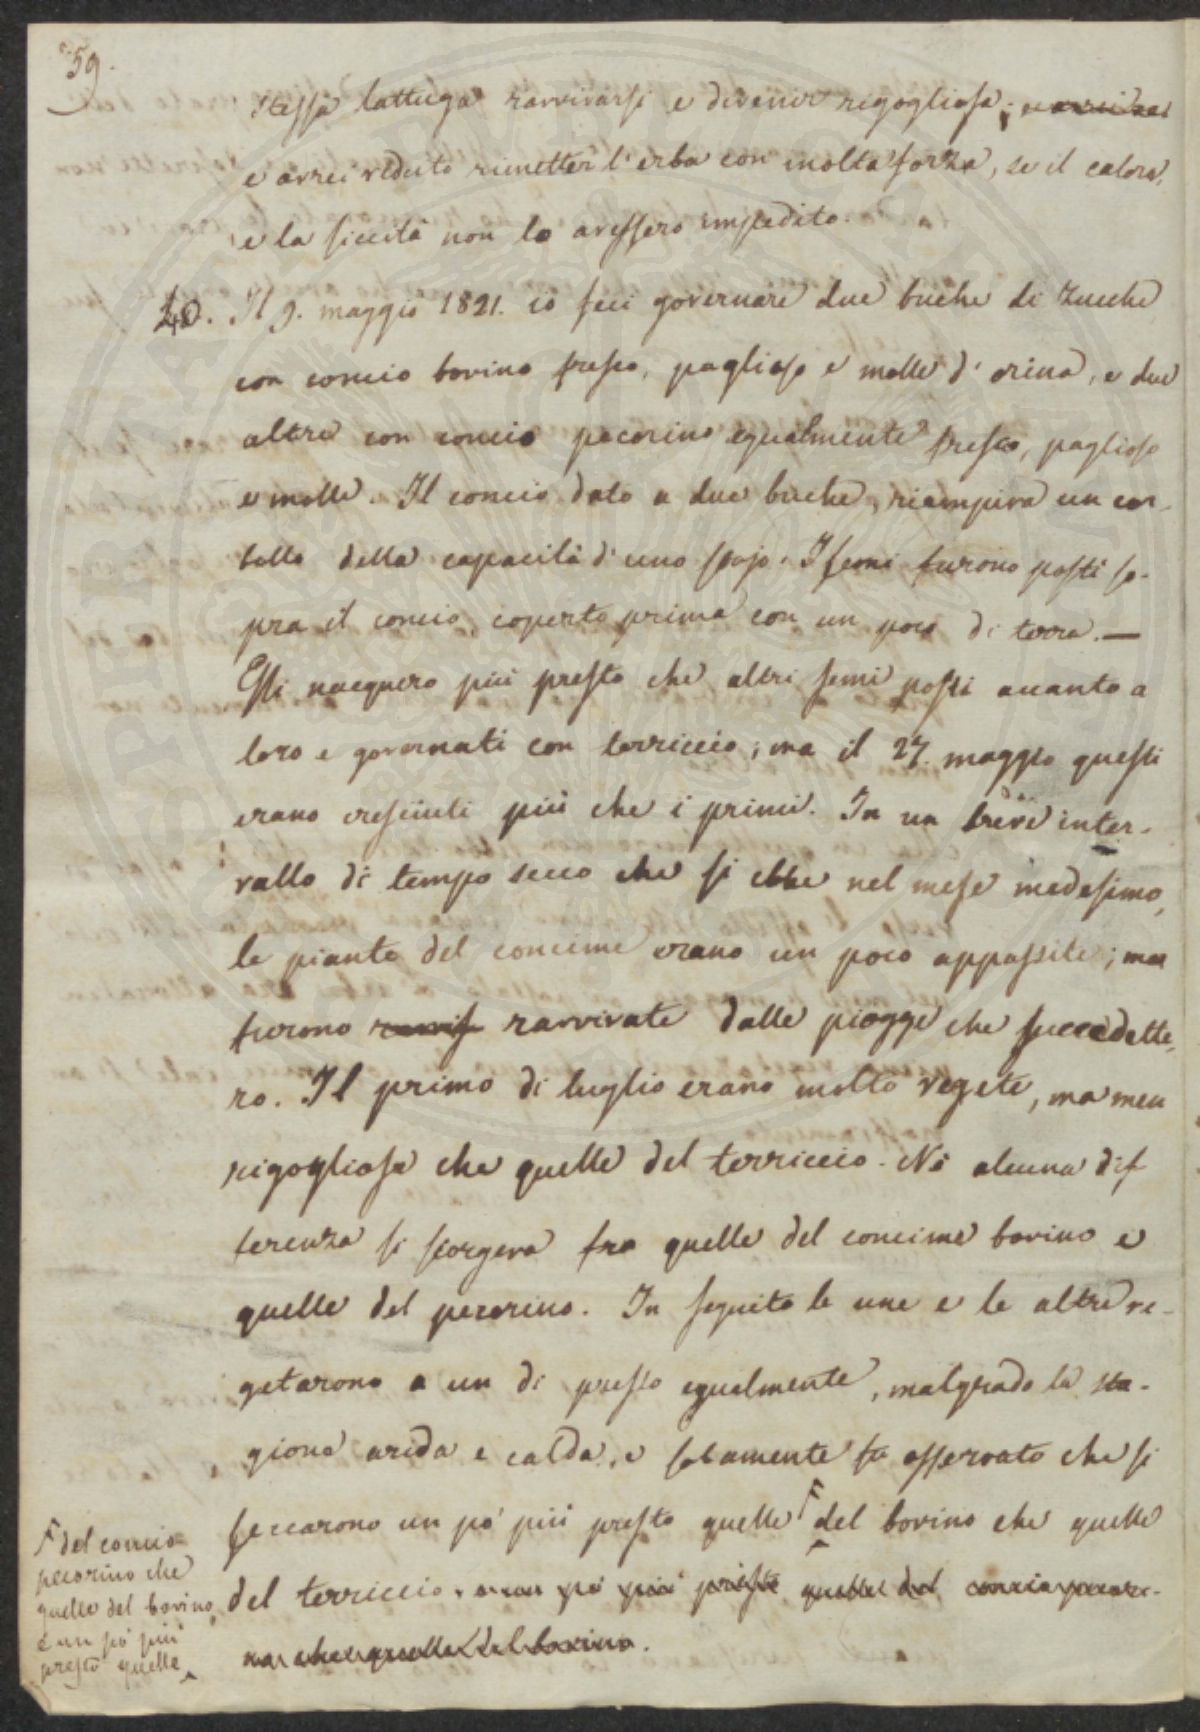 59.
stessa lattuga ravvivarsi e divenir rigogliosa;
e avrei veduto rimetter l'erba con molta forza, se il calore,
e la siccità non lo avessero impedito.
40. Il 9. maggio 1821. io feci governare due buche di zucche
con concio bovino fresco, paglioso e molle d'orina, e due
altre con concio pecorino egualmente fresco, paglioso
e molle. Il concio dato a due buche, riempiva un cor-
bello della capacità d'uno stajo. I semi furono posti so-
pra il concio, coperto prima con un poco di terra.—
Essi nacquero più presto che altri semi posti accanto a
loro e governati con terriccio; ma il 27. maggio questi
erano cresciuti più che i primi. In un breve inter-
vallo di tempo secco che si ebbe nel mese medesimo,
le piante del concime erano un poco appassite; ma
furono ravvis ravvivate dalle piogge che succedette-
ro. Il primo di luglio erano molto vegete, ma men
rigogliose che quelle del terriccio. Nè alcuna dif
ferenza si scorgeva fra quelle del concime bovino e
quelle del pecorino. In seguito le une e le altre ve-
getarono a un di presso egualmente, malgrado la sta-
gione arida e calda, e solamente fu osservato che si
seccarono un pò più presto quelle del bovino che quelle
del terriccio. e un pò più presto quelle del concio pecori-
no che quelle del bovino.
del concio
pecorino che
quelle del bovino,
e un pò più
presto quelle